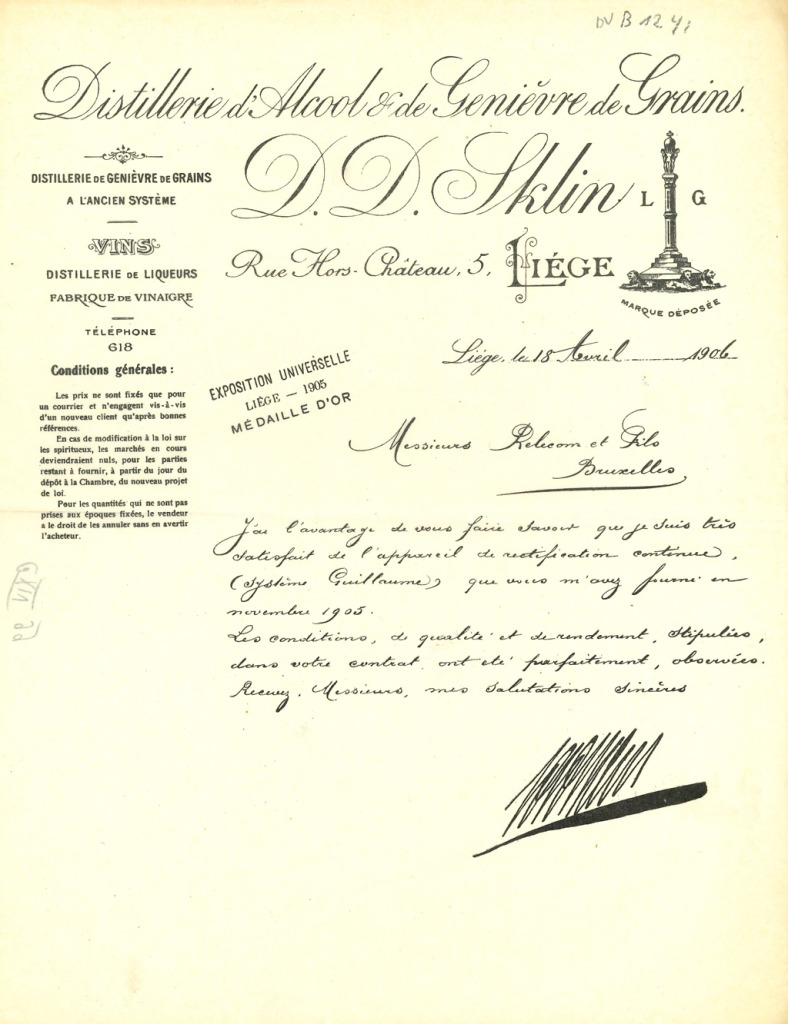 DV B 12 4;
Distillerie d'Alcool & de Genièvre de Grains.
D. D. Sklin
L G
Rue Hors-Château, 5, LIÉGE
MARQUE DÉPOSÉE
DISTILLERIE DE GENIÈVRE DE GRAINS
A L'ANCIEN SYSTÈME
VINS
DISTILLERIE DE LIQUEURS
FABRIQUE DE VINAIGRE
TÉLÉPHONE
618
Conditions générales :
Les prix ne sont fixés que pour
un courrier et n'engagent vis-à-vis
d'un nouveau client qu'après bonnes
références.
En cas de modification à la loi sur
les spiritueux, les marchés en cours
deviendraient nuls, pour les parties
restant à fournir, à partir du jour du
dépôt à la Chambre, du nouveau projet
de loi.
Pour les quantités qui ne sont pas
prises aux époques fixées, le vendeur
a le droit de les annuler sans en avertir
l'acheteur.
EXPOSITION UNIVERSELLE
LIÉGE — 1905
MÉDAILLE D'OR
Liége, le 18 Avril 1906
Messieurs Relecom et Fils
Bruxelles
J'ai l'avantage de vous faire savoir que je suis très
satisfait de l'appareil de rectification continue,
(système Guillaume) que vous m'avez fourni en
novembre 1905.
Les conditions, de qualité et de rendement, stipulées,
dans votre contrat, ont été parfaitement, observées.
Recevez, Messieurs, mes salutations sincères